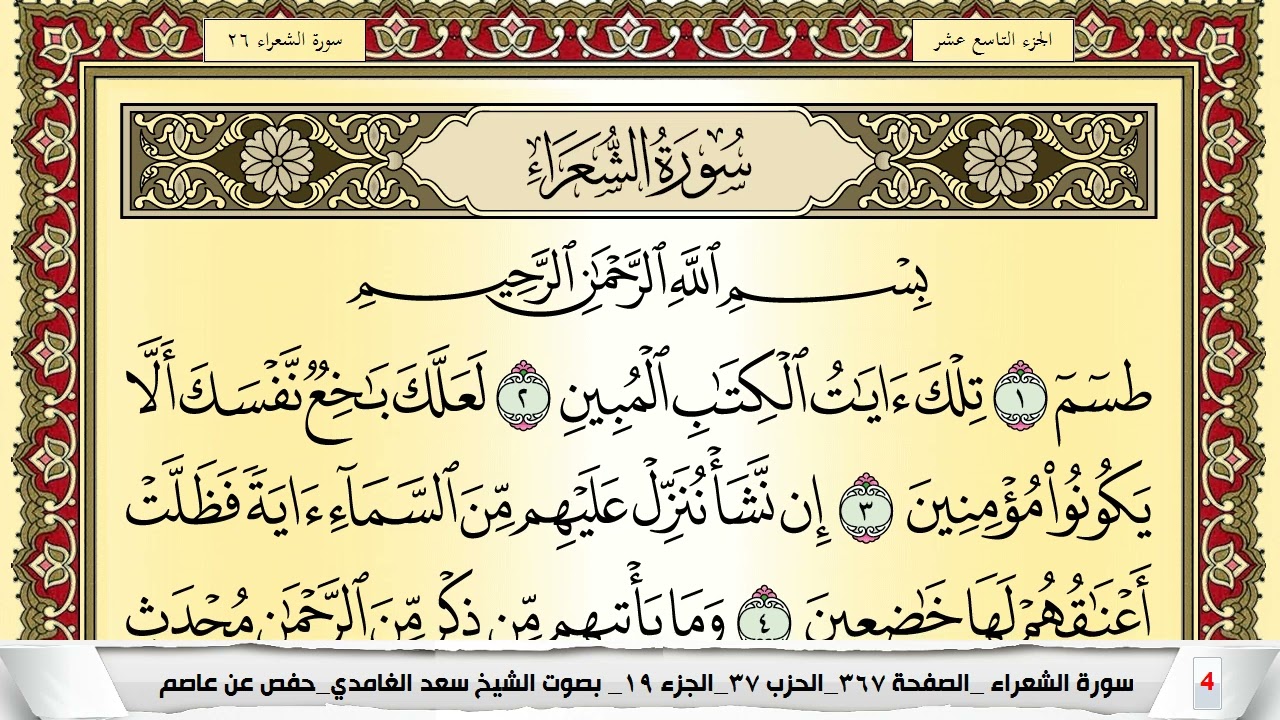 الجزء التاسع عشر
سورة الشعراء ٢٦
سُورَةُ الشُّعَرَاءِ
بِسْمِ ٱللَّهِ ٱلرَّحْمَٰنِ ٱلرَّحِيمِ
طسٓمٓ ١ تِلْكَ ءَايَٰتُ ٱلْكِتَٰبِ ٱلْمُبِينِ ٢ لَعَلَّكَ بَٰخِعٌ نَّفْسَكَ أَلَّا
يَكُونُوا۟ مُؤْمِنِينَ ٣ إِن نَّشَأْ نُنَزِّلْ عَلَيْهِم مِّنَ ٱلسَّمَآءِ ءَايَةً فَظَلَّتْ
أَعْنَٰقُهُمْ لَهَا خَٰضِعِينَ ٤ وَمَا يَأْتِيهِم مِّن ذِكْرٍ مِّنَ ٱلرَّحْمَٰنِ مُحْدَثٍ
4 سورة الشعراء _الصفحة ٣٦٧_الحزب ٣٧_الجزء ١٩_ بصوت الشيخ سعد الغامدي_حفص عن عاصم